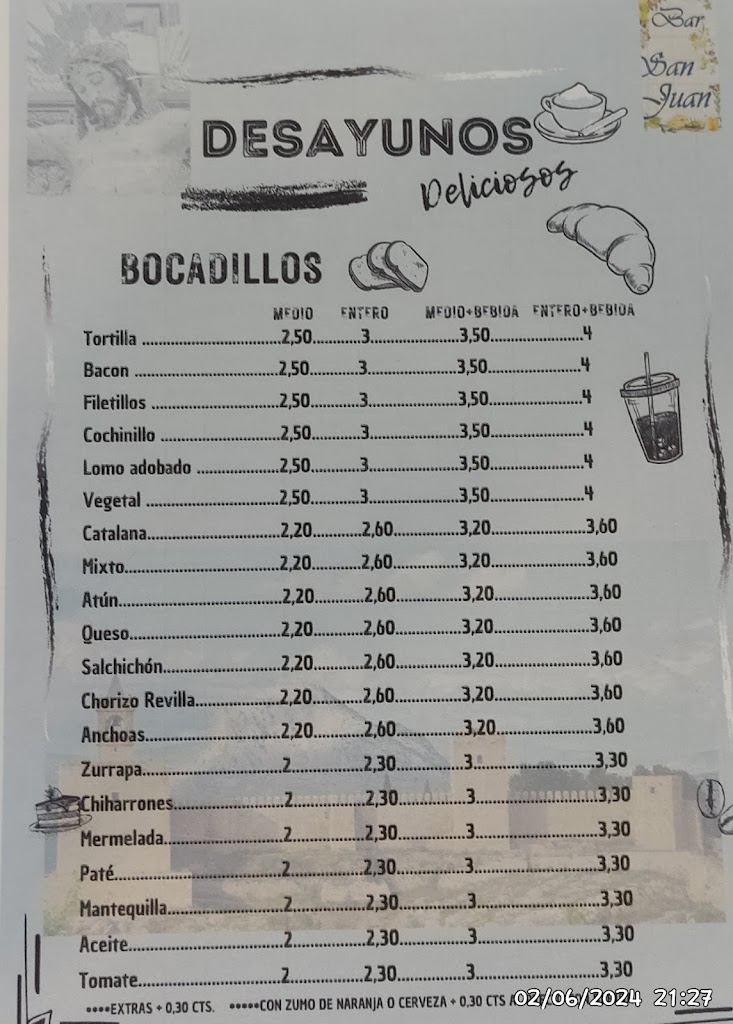 Bar
San
Juan
DESAYUNOS
Deliciosos
BOCADILLOS
MEDIO ENTERO MEDIO+BEBIDA ENTERO+BEBIDA
Tortilla ........2,50........3........3,50........4
Bacon ........2,50........3........3,50........4
Filetillos ........2,50........3........3,50........4
Cochinillo ........2,50........3........3,50........4
Lomo adobado ........2,50........3........3,50........4
Vegetal ........2,50........3........3,50........4
Catalana........2,20........2,60........3,20........3,60
Mixto........2,20........2,60........3,20........3,60
Atún........2,20........2,60........3,20........3,60
Queso........2,20........2,60........3,20........3,60
Salchichón........2,20........2,60........3,20........3,60
Chorizo Revilla........2,20........2,60........3,20........3,60
Anchoas........2,20........2,60........3,20........3,60
Zurrapa........2........2,30........3........3,30
Chiharrones........2........2,30........3........3,30
Mermelada........2........2,30........3........3,30
Paté........2........2,30........3........3,30
Mantequilla........2........2,30........3........3,30
Aceite........2........2,30........3........3,30
Tomate........2........2,30........3........3,30
••••EXTRAS + 0,30 CTS. •••••CON ZUMO DE NARANJA O CERVEZA + 0,30 CTS
02/06/2024 21:27